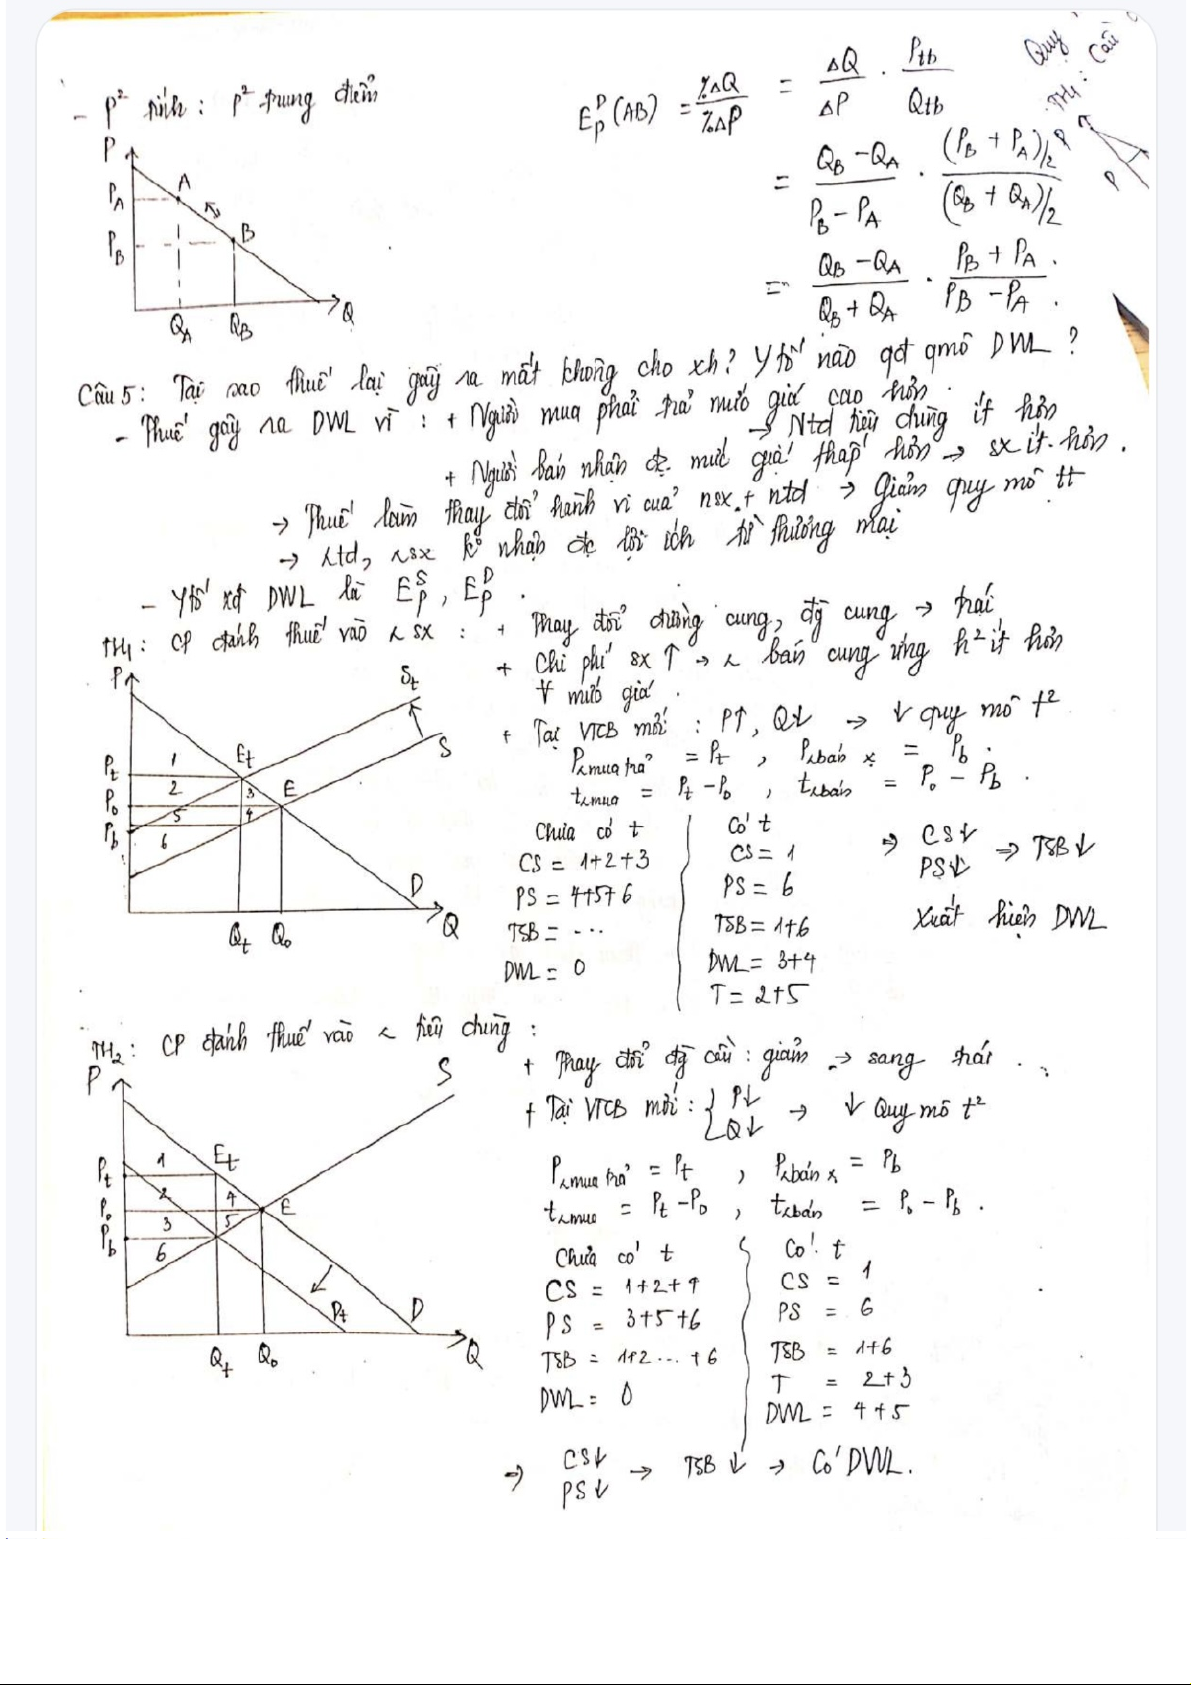 - p² tính : p² trung điểm
E_p^D (AB) = %ΔQ / %ΔP = ΔQ/ΔP . Ptb/Qtb
= (Q_B - Q_A)/(P_B - P_A) . ((P_B + P_A)/2)/((Q_B + Q_A)/2)
= (Q_B - Q_A)/(Q_B + Q_A) . (P_B + P_A)/(P_B - P_A) .
Quy
TH1 : Cầu
P
P_A
A
P_B
B
Q_A
Q_B
Q
Câu 5 : Tại sao thuế lại gây ra mất không cho xh? Y tố nào qđ qmô DWL ?
- Thuế gây ra DWL vì : + Người mua phải trả mức giá cao hơn .
→ Ntd tiêu dùng ít hơn
+ Người bán nhận đc mức giá thấp hơn → sx ít hơn .
→ Thuế làm thay đổi hành vi của nsx + ntd → Giảm quy mô tt
→ ntd, nsx ko nhận đc lợi ích từ thương mại
- Y tố xđ DWL là E_p^S , E_p^D .
TH1 : CP đánh thuế vào n sx :
+ Thay đổi đường cung, đg cung → trái
+ Chi phí sx ↑ → n bán cung ứng h² ít hơn
∀ mức giá .
+ Tại VTCB mới : P↑, Q↓ → ↓ quy mô t²
P n mua trả = Pt , P n bán x = Pb .
t n mua = Pt - Po , t n bán = Po - Pb .
P
St
S
Et
E
Pt
Po
Pb
1
2
3
4
5
6
D
Qt
Qo
Q
Chưa có t
CS = 1+2+3
PS = 4+5+6
TSB = ...
DWL = 0
Có t
CS = 1
PS = 6
TSB = 1+6
DWL = 3+4
T = 2+5
⇒ CS↓ PS↓ ⇒ TSB↓
Xuất hiện DWL
TH2 : CP đánh thuế vào n tiêu dùng :
+ Thay đổi đg cầu : giảm → sang trái .
+ Tại VTCB mới : { P↓ Q↓ → ↓ Quy mô t²
P n mua trả = Pt , P n bán x = Pb
t n mua = Pt - Po , t n bán = Po - Pb .
P
S
Et
E
Pt
Po
Pb
1
2
4
3
5
6
Dt
D
Qt
Qo
Q
Chưa có t
CS = 1+2+4
PS = 3+5+6
TSB = 1+2...+6
DWL = 0
Có t
CS = 1
PS = 6
TSB = 1+6
T = 2+3
DWL = 4+5
⇒ CS↓ PS↓ → TSB ↓ → Có DWL.